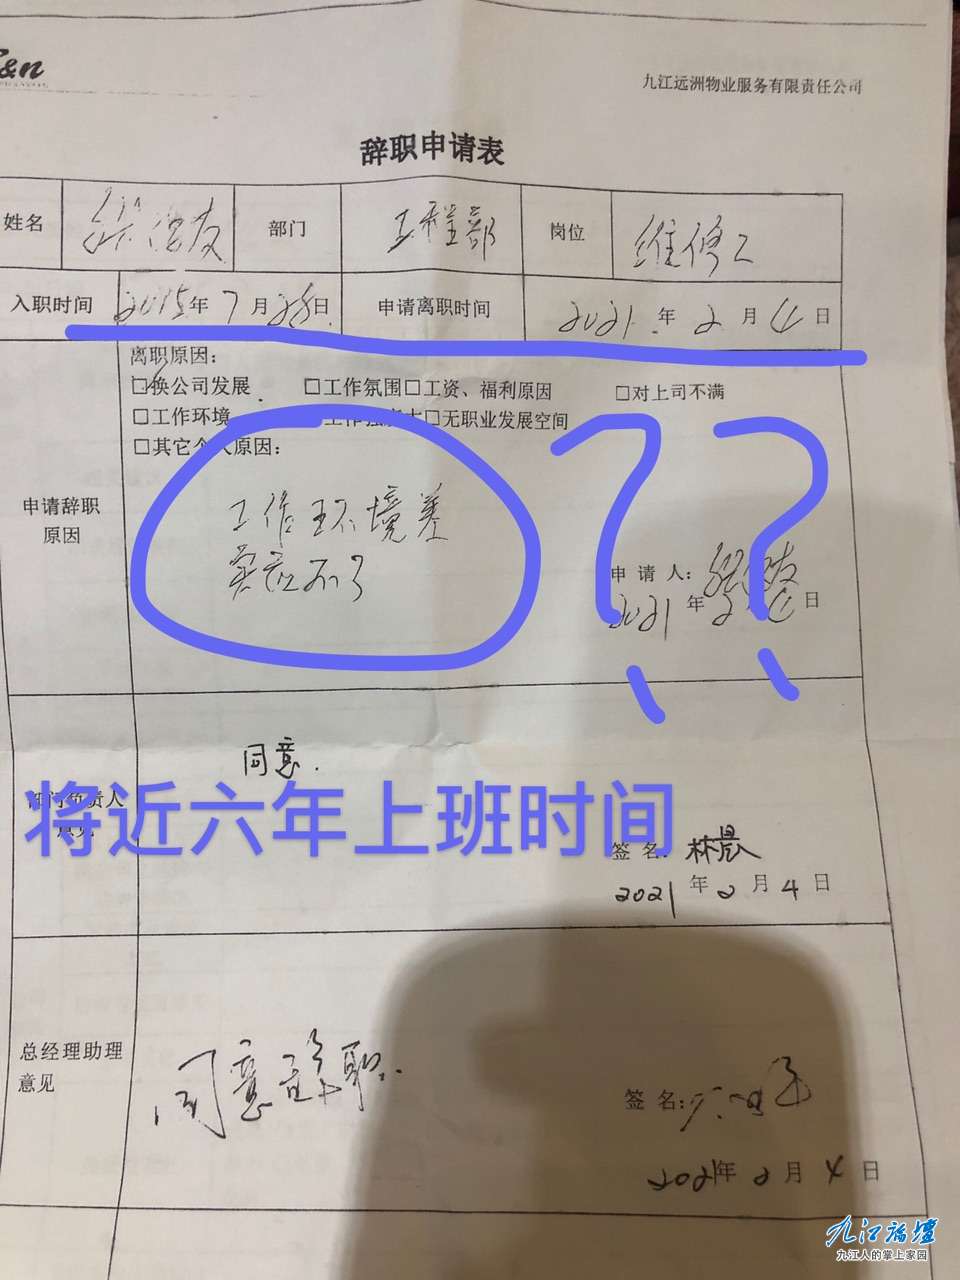 &n
九江远洲物业服务有限责任公司
辞职申请表
姓名 部门 工程部 岗位 维修工
入职时间 2015年7月28日 申请离职时间 2021年2月4日
离职原因：
□换公司发展 □工作氛围□工资、福利原因 □对上司不满
□工作环境 工作强度大□无职业发展空间
□其它个人原因：
申请辞职
原因
工作环境差
实在不了
? ?
申 请 人：
2021年2月 日
同意.
部门负责人
意见
将近六年上班时间
签 名：林晨
2021年2月4日
总经理助理
意见
同意辞职.
签 名：
2021年2月4日
九江论坛
九江人的掌上家园